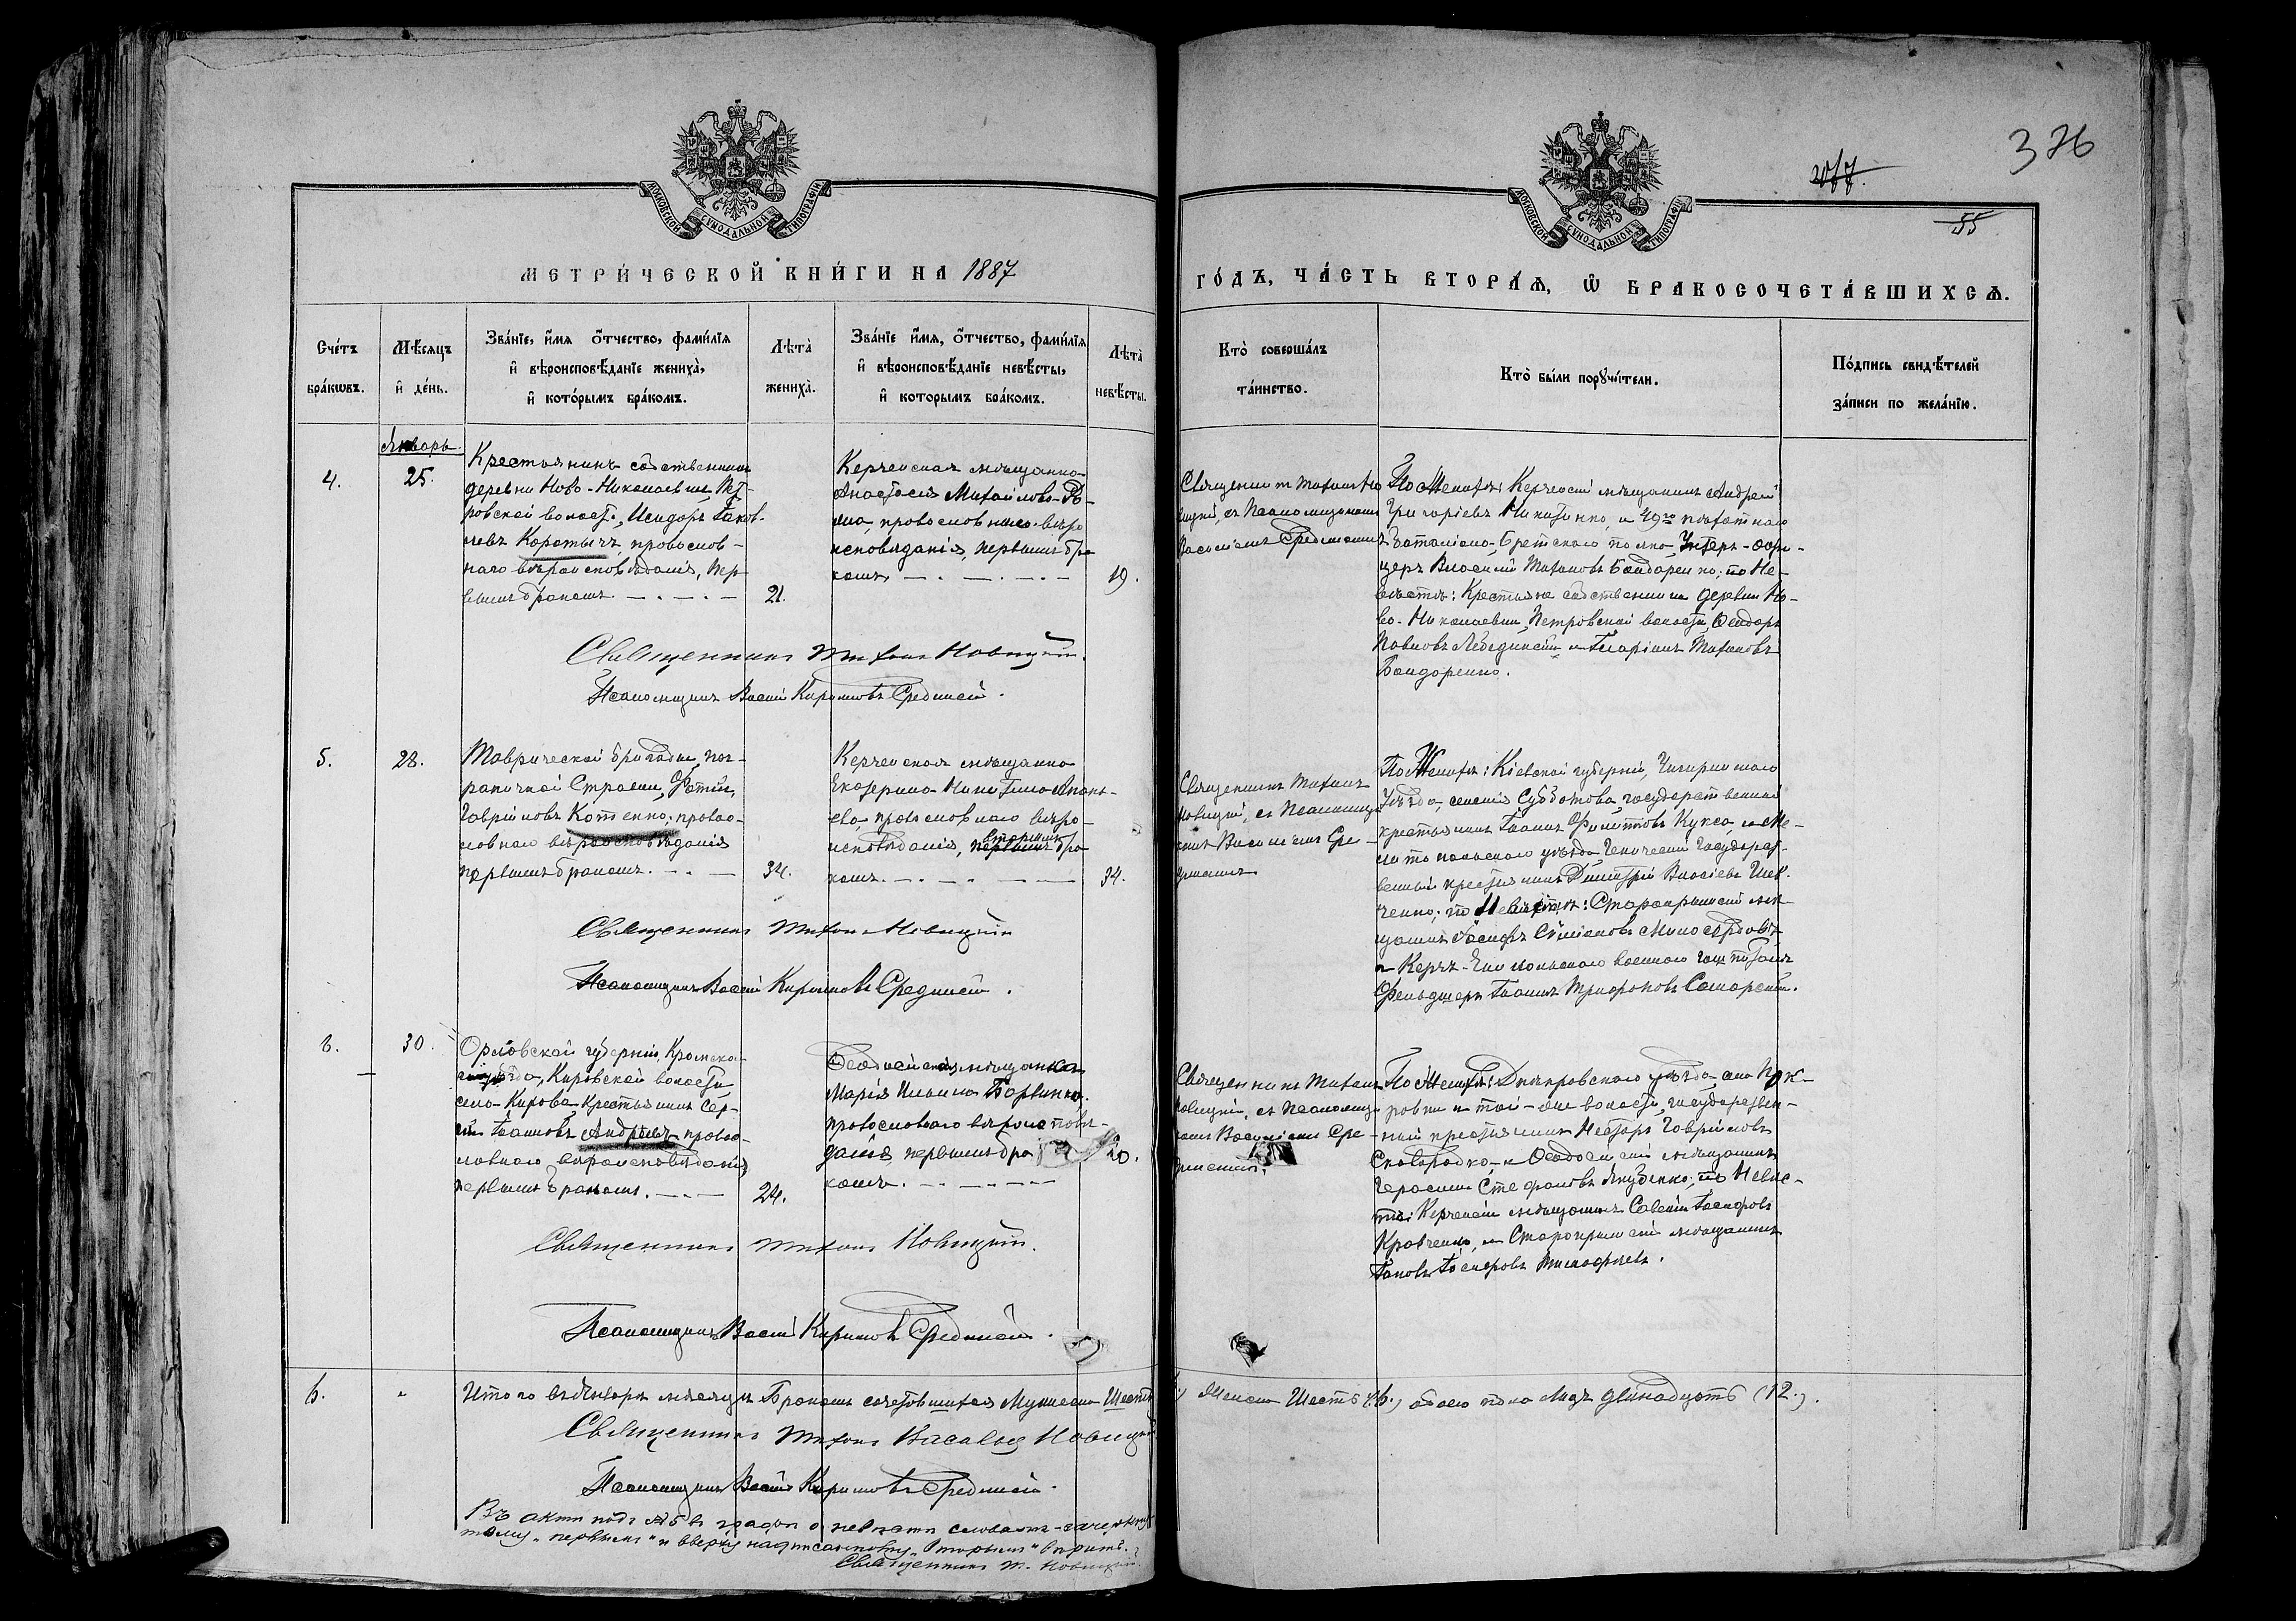 376
2077.
55
МОСКОВСКОЙ СѴНОДАЛЬНОЙ ТИПОГРАФІИ
МОСКОВСКОЙ СѴНОДАЛЬНОЙ ТИПОГРАФІИ
МЕТРИ́ЧЕСКОЙ КНИ́ГИ НА 1887
ГО́ДЪ, ЧА́СТЬ ВТОРА́Ѧ, Ѡ҆ БРАКОСОЧЕТА́ВШИХСѦ.
Сче́тъ
бра́кѡвъ.
Мѣ́сяцъ
и҆ де́нь.
Зва́нїе, и҆́мя ѻ҆́тчество, фами́лїя
и҆ вѣроисповѣ́данїе жениха̀,
и҆ кото́рымъ бра́комъ.
Лѣта̀
жениха̀.
Зва́нїе и҆́мя, ѻ҆́тчество, фами́лїя
и҆ вѣроисповѣ́данїе невѣ́сты,
и҆ которымъ бра́комъ.
Лѣта̀
невѣ́сты.
Кто̀ соверша́лъ
та́инство.
Кто̀ бы́ли порꙋчи́тели.
По́дпись свидѣ́телей
за́писи по жела́нїю.
Январь
4.
25.
Крестьянинъ собственникъ
деревни Ново-Николаевки, Пет-
ровской волости, Исидоръ Іаков-
левъ Коротычъ, православ-
наго вѣроисповѣданія, пер-
вымъ бракомъ.
21.
Керченская мѣщанка
Анастасія Михайлова
православнаго вѣро
исповѣданія, первымъ бра
комъ
19.
Священникъ Тихонъ Но
вицкій, съ Псаломщикомъ
Василіемъ Срединскимъ
По Женихѣ: Керченскій мѣщанинъ Андрей
Григоріевъ Никитенко, и 49го
Брестскаго полка, Унтеръ-офи-
церъ Василій Тихоновъ Бондаренко; по Не-
вѣстѣ: Крестьяне собственники деревни Но-
во-Николаевки, Петровской волости, Ѳеодоръ
Павловъ Лебединскій и Иларіонъ Тихоновъ
Бондаренко.
Священникъ Тихонъ Новицкій.
Псаломщикъ Василій Кирилловъ Срединскій.
5.
28.
Таврической бригады, пог-
раничной Стражи, Фотій
Гавріиловъ Котенко, право-
славнаго вѣроисповѣданія
первымъ бракомъ.
34.
Керченская мѣщанка
Екатерина Никитина Анань-
ева, православнаго вѣро-
вторымъ
исповѣданія, первымъ бра
комъ.
34.
Священникъ Тихонъ
Новицкій, съ Псаломщи
комъ Василіемъ Сре-
динскимъ
По Женихѣ: Кіевской губерніи, Чигиринскаго
Уѣзда, селенія Субботова, государственный
крестьянинъ Іоаннъ Филиповъ Кукса, и Ме-
литопольскаго уѣзда, Геническій Государст-
венный крестьянинъ Димитрій Власіевъ
по Невѣстѣ: Старокрымскій мѣ-
щанинъ Іосифъ Симіоновъ Милосердовъ
и Керчь-Еникольскаго военнаго госпиталя
Фельдшеръ Іоаннъ Трифоновъ Самарскій.
Священникъ Тихонъ Новицкій
Псаломщикъ Василій Кирилловъ Срединскій.
6.
30.
Орловской губерніи, Кромска-
го уѣзда, Кировской волости
села Кирова, Крестьянинъ Сер-
гій Іоанновъ Андреевъ, право-
славнаго вѣроисповѣданія
первымъ бракомъ.
24.
Ѳеодосійская мѣщанка
Марія Ильина Барвинко.
православнаго вѣроисповѣ-
данія первымъ бра
комъ.
20.
Священникъ Тихонъ
Новицкій, съ Псаломщи
комъ Василіемъ Сре-
динскимъ.
По Женихѣ: Днѣпровскаго уѣзда, села Пок-
ровки и той-же волости, государствен-
ный крестьянинъ Несторъ Гавріиловъ
Сковородко, и Ѳеодосійскій мѣщанинъ
Герасимъ Стефановъ Якубенко; по Невѣс-
тѣ: Керченскій мѣщанинъ Савелій Іосифовъ
Кравченко, и Старокрымскій мѣщанинъ
Іаковъ Іосифовъ Тимофѣевъ.
Священникъ Тихонъ Новицкій.
Псаломщикъ Василій Кирилловъ Срединскій.
6.
Итого въ Январѣ мѣсяцѣ Бракомъ сочетавшихся Мужеска Шесть
Женска Шесть (6.) обоего пола лицъ двѣнадцать (12.).
Священникъ Тихонъ Васильевъ Новицкій
Псаломщикъ Василій Кирилловъ Срединскій.
Въ актѣ подъ №5 въ графѣ о невѣстѣ
„первымъ“ и вверху надписанному „вторымъ“ вѣрить.
Священникъ Т. Новицкій